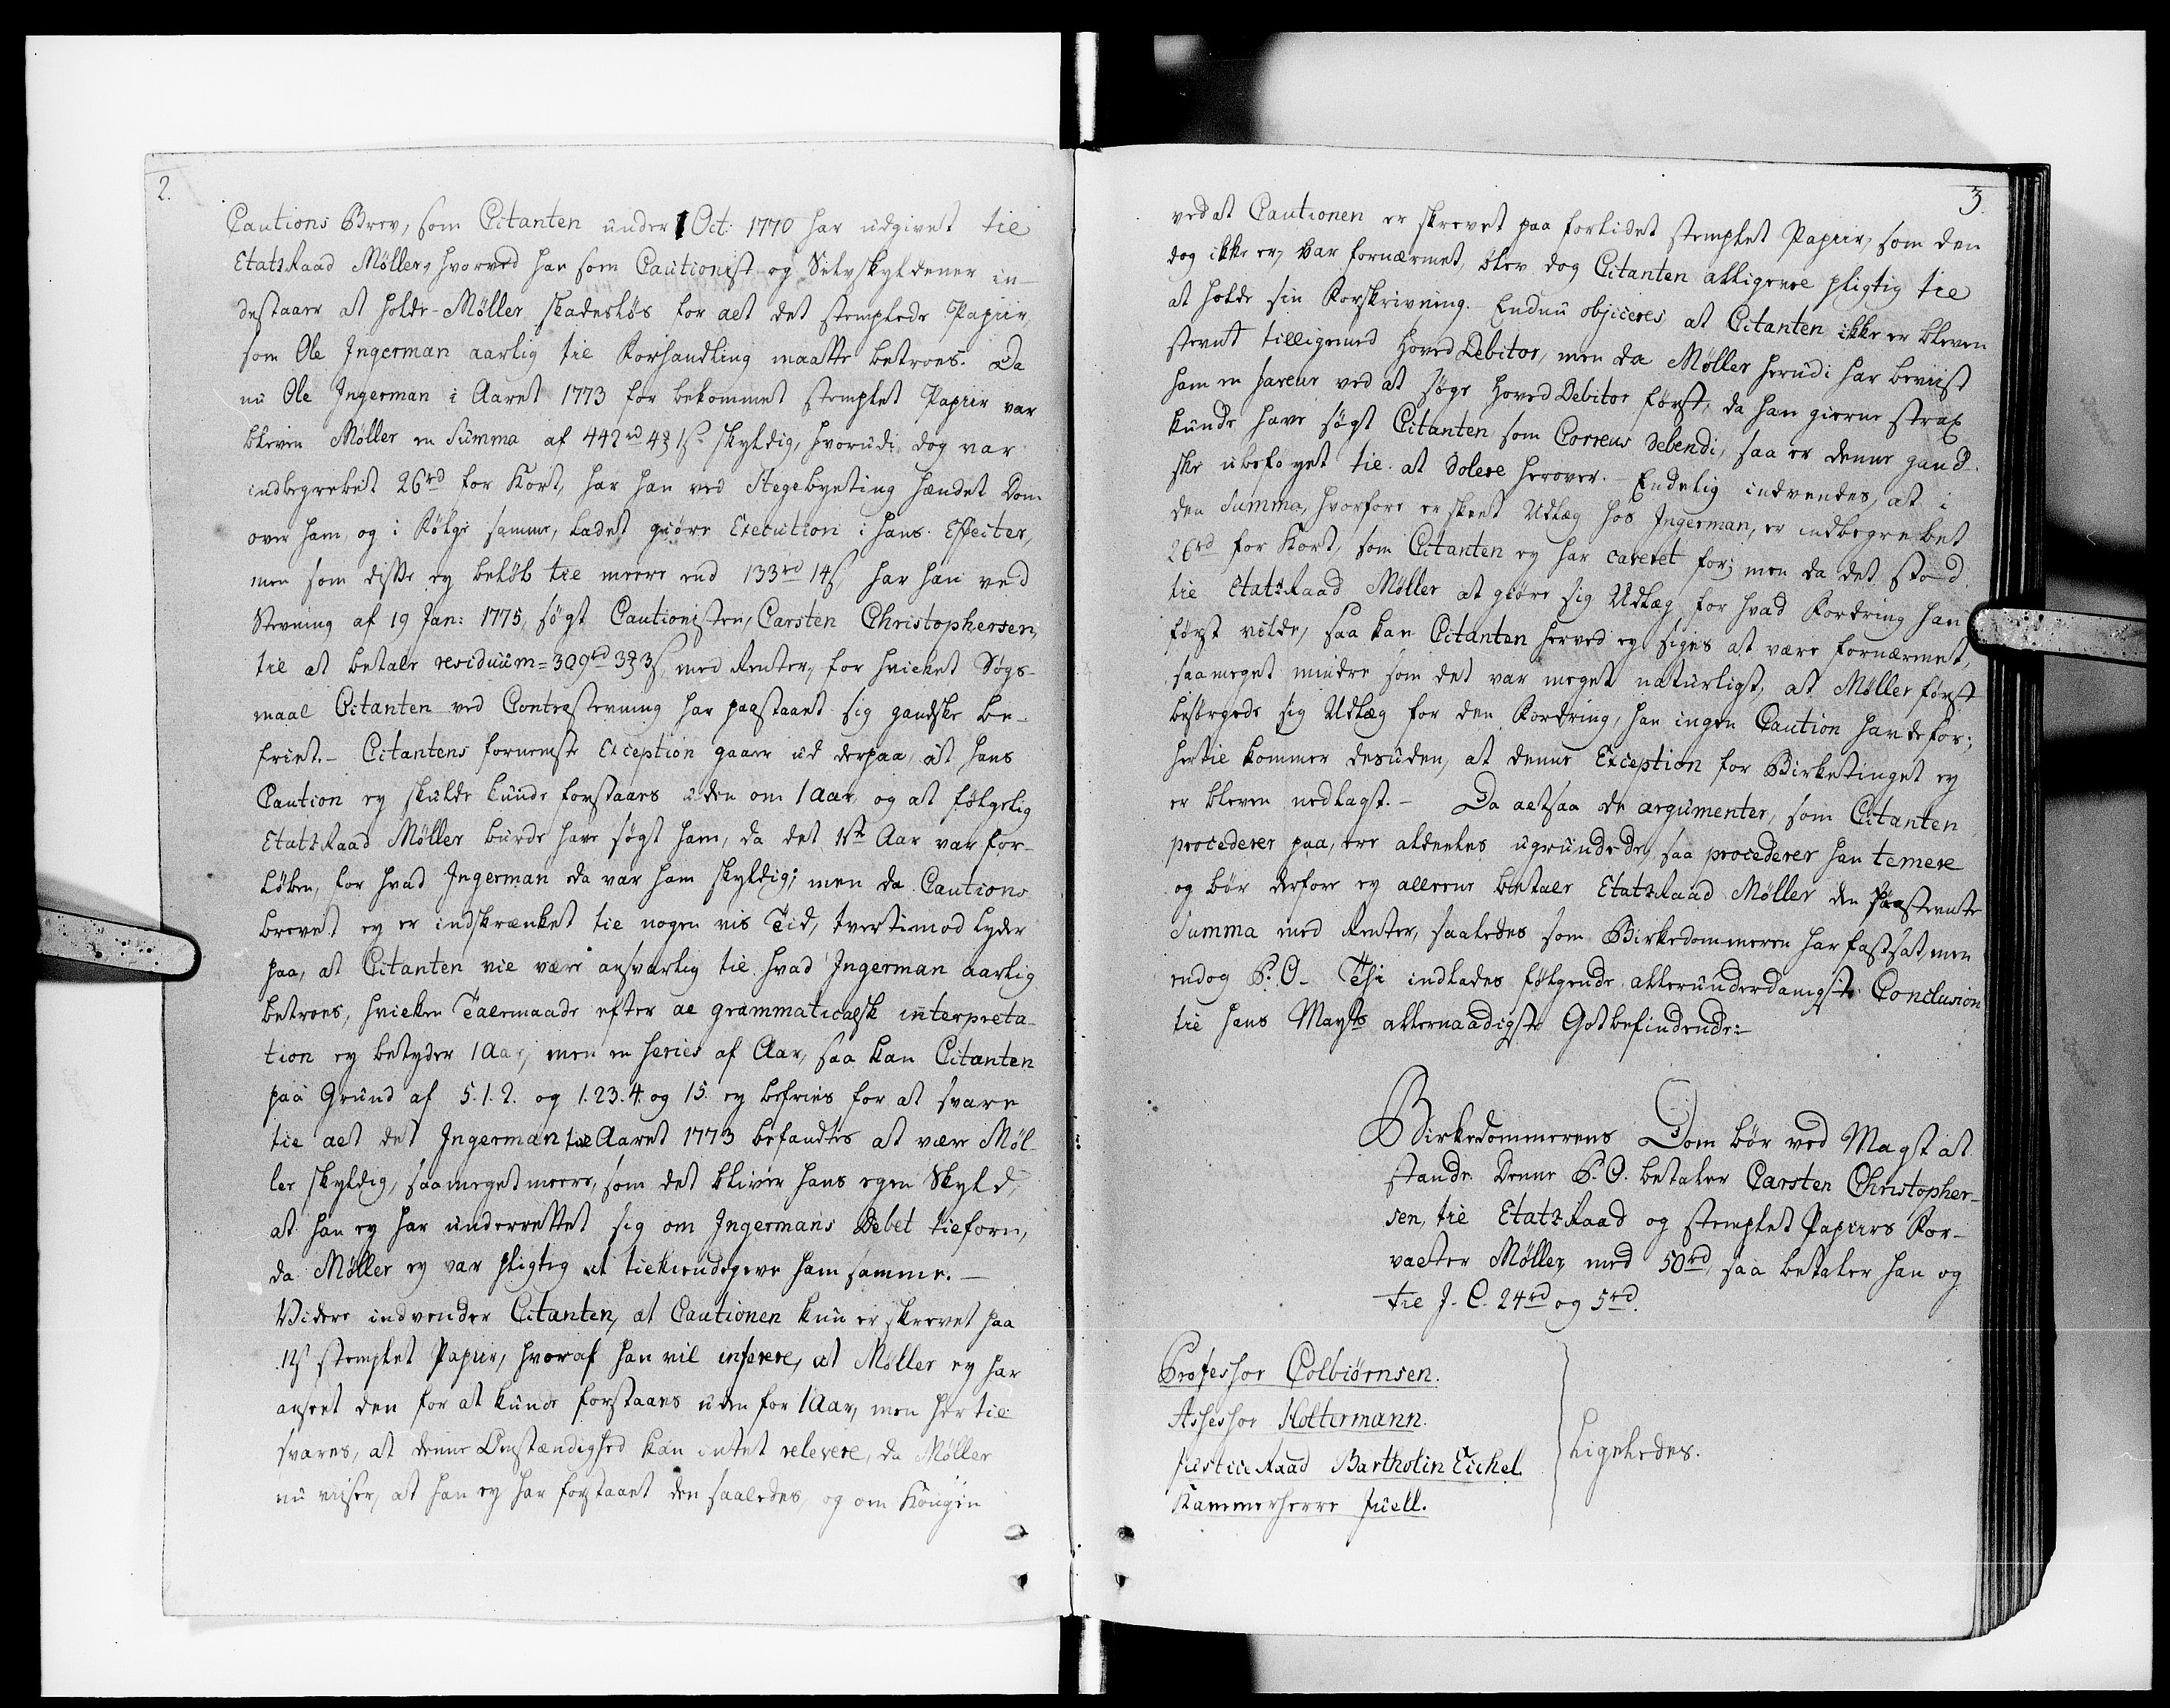 2.
Cautions Brev, som Citanten under 1 Oct: 1770 har udgivet til
EtatzRaad Møller, hvorved han som Cautionist og Selvskyldener in-
destaaer at holde Møller skadesløs for alt det stemplede Papiir,
som Ole Ingerman aarlig til Forhandling maatte betroes. Da
nu Ole Ingerman i Aaret 1773 for bekommet stemplet Papiir var
bleven Møller en Summa af 442rd 4ȝ 1ß skyldig, hvorudi dog var
indbegrebet 26rd for Kort, har han ved Stegebyeting hændet Dom
over ham og i Følge samme, ladet giøre Execution i hans Effecter,
men som disse ey beløb til meere end 133rd 14ß, har han ved
Stevning af 19 Jan: 1775, søgt Cautionisten, Carsten Christophersen,
til at betale residuum = 309rd 3ȝ 3ß, med Renter, for hvilket Søgs-
maal Citanten ved Contrastevning har paastaaet sig gandske be-
friet. - Citantens fornemste Exception gaaer ud derpaa, at hans
Caution ey skulde kunde forstaaes uden om 1 Aar, og at følgelig
EtatzRaad Møller burde have søgt ham, da det 1ste Aar var for-
løben, for hvad Ingerman da var ham skyldig; men da Cautions
brevet ey er indskrænket til nogen vis Tid, tvertimod lyder
paa, at Citanten vil være ansvarlig til hvad Ingerman aarlig
betroes, hvilken Talemaade efter al grammaticalsk interpreta-
tion ey betyder 1 Aar, men en series af Aar, saa kan Citanten
paa Grund af 5.1.2. og 1.23.4. og 15. ey befries for at svare
til alt det Ingerman til Aaret 1773 befandtes at være Møl-
ler skyldig, saameget meere, som det bliver hans egen Skyld,
at han ey har underrettet sig om Ingermans Debet tilforn,
da Møller ey var pligtig at tilkiendegive ham samme. -
Videre indvender Citanten, at Cautionen kun er skrevet paa
12ß stemplet Papiir, hvoraf han vil inferere, at Møller ey har
anseet den for at kunde forstaaes uden for 1 Aar, men hertil
svares, at denne Omstændighed kan intet relevere, da Møller
nu viiser, at han ey har forstaaet den saaledes, og om Kongen
3.
ved at Cautionen er skrevet paa forlidet stemplet Papiir, som den
dog ikke er, var fornærmet, blev dog Citanten alligevel pligtig til
at holde sin Forskrivning. Endnu objiceres, at Citanten ikke er bleven
stevnt tilligemed Hoved Debitor, men da Møller herudi har beviist
ham en faveur ved at søge Hoved Debitor først, da han gierne strax
kunde have søgt Citanten som Correus debendi, saa er denne gand-
ske ubeføyet til at dolere herover. - Endelig indvendes, at i
den Summa, hvorfore er skeet Udlæg hos Ingerman, er indbegrebet
26rd for Kort, som Citanten ey har caveret for; men da det stod
til EtatzRaad Møller at giøre sig Udlæg for hvad Fordring han
først vilde, saa kan Citanten herved ey siges at være fornærmet,
saameget mindre som det var meget naturligt, at Møller først
besørgede sig Udlæg for den Fordring, han ingen Caution havde for;
hertil kommer desuden, at denne Exception for Birketinget ey
er bleven nedlagt. - Da altsaa de argumenter, som Citanten
procederer paa, ere aldeeles ugrundede, saa procederer han temere
og bør derfore ey alleene betale EtatzRaad Møller den paastevnte
Summa med Renter, saaledes som Birkedommeren har fastsat, men
endog P. O. Thi indlades følgende allerunderdanigste Conclusion
til Hans Mayts allernaadigste Gotbefindende:-
Birkedommerens Dom bør ved Magt at
stande. Denne P. O. betaler Carsten Christopher-
sen, til EtatzRaad og stemplet Papiirs For-
valter Møller, med 50rd, saa betaler han og
til J. C. 24rd og 5rd.
Professor Colbiørnsen.
Assessor Holtermann.
JustitzRaad Bartholin Eichel.
Kammerherre Juell.
Ligeledes.